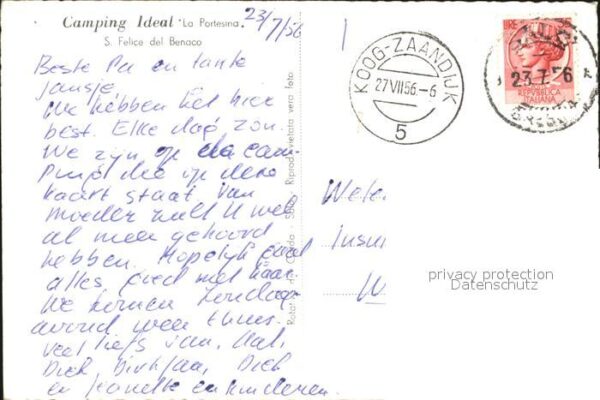 Camping Ideal "La Portesina"
S. Felice del Benaco
23/7/56
Beste Pa en tante
Jansje,
We hebben het hier
best. Elke dag zon.
We zijn op de cam-
ping die op deze
kaart staat van
moeder zult U wel
al meer gehoord
hebben. Hopelijk gaat
alles goed met haar.
We komen Zondag-
avond weer thuis.
veel liefs van,
Dick, Dick
en Jeanette en kinderen.
Riprod. vietata vera foto
KOOG-ZAANDIJK
27 VII 56.-6
5
LIRE
23.7.56
REPVBBLICA
ITALIANA
Wele
Insu
privacy protection
Datenschutz